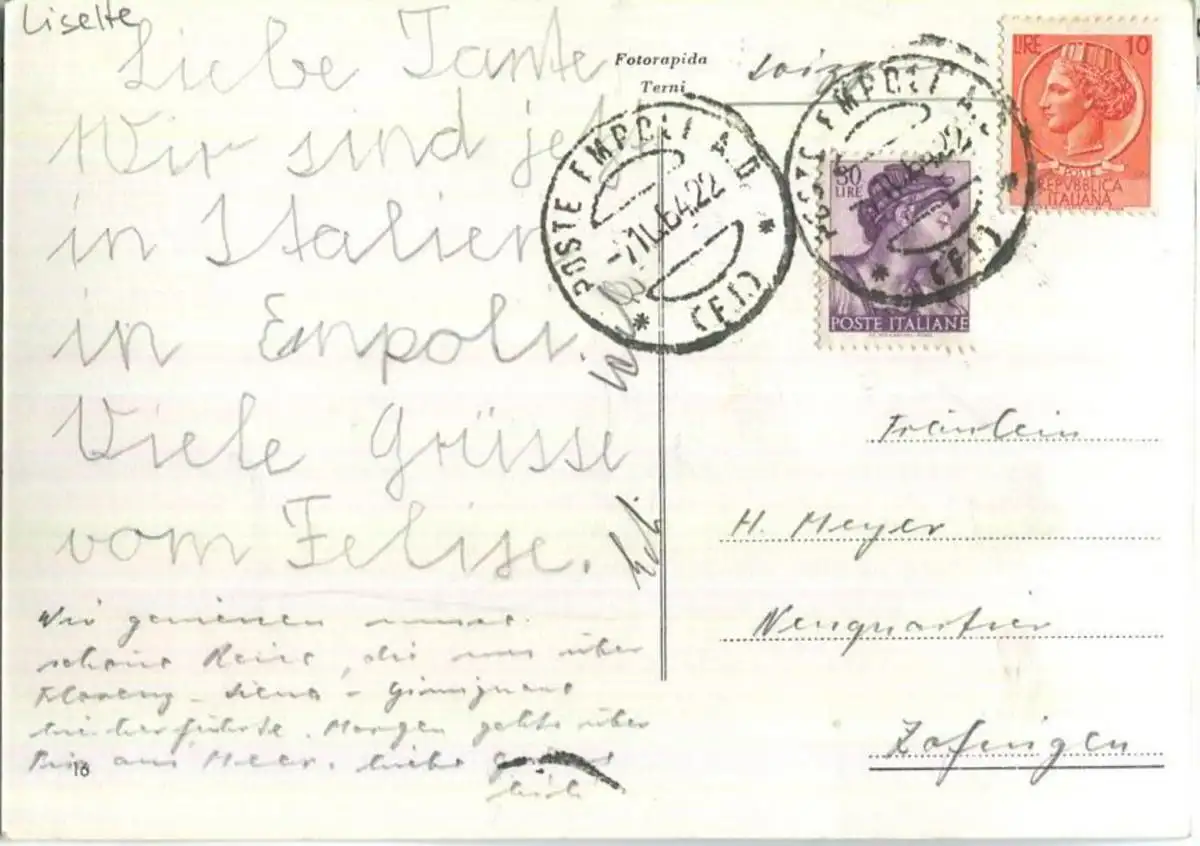 Liselte
Liebe Tante
Wir sind jetzt
in Italien
in Empoli.
Viele Grüsse
vom Felise.
Wir geniessen unsere
schöne Reise, die uns über
Florenz - Siena - Gimignano
hierherführte. Morgen gehts über
Pisa ans Meer. Liebe
16
Fotorapida
Terni
POSTE EMPOLI A.D.
(FI)
POSTE EMPOLI A.D.
(FI)
LIRE 10
POSTE
REPVBBLICA
ITALIANA
30
LIRE
POSTE ITALIANE
Fräulein
H. Meyer
Neuquartier
Zofingen